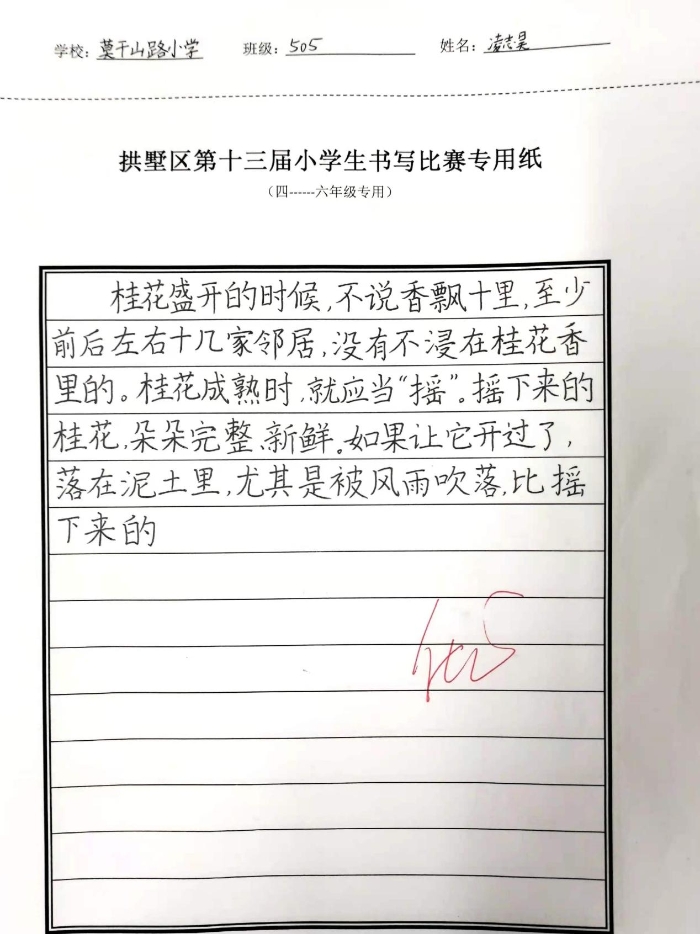 学校: 莫干山路小学 班级: 505 姓名: 凌志昊
拱墅区第十三届小学生书写比赛专用纸
（四------六年级专用）
桂花盛开的时候,不说香飘十里,至少
前后左右十几家邻居,没有不浸在桂花香
里的。桂花成熟时,就应当“摇”。摇下来的
桂花,朵朵完整、新鲜。如果让它开过了,
落在泥土里,尤其是被风雨吹落,比摇
下来的